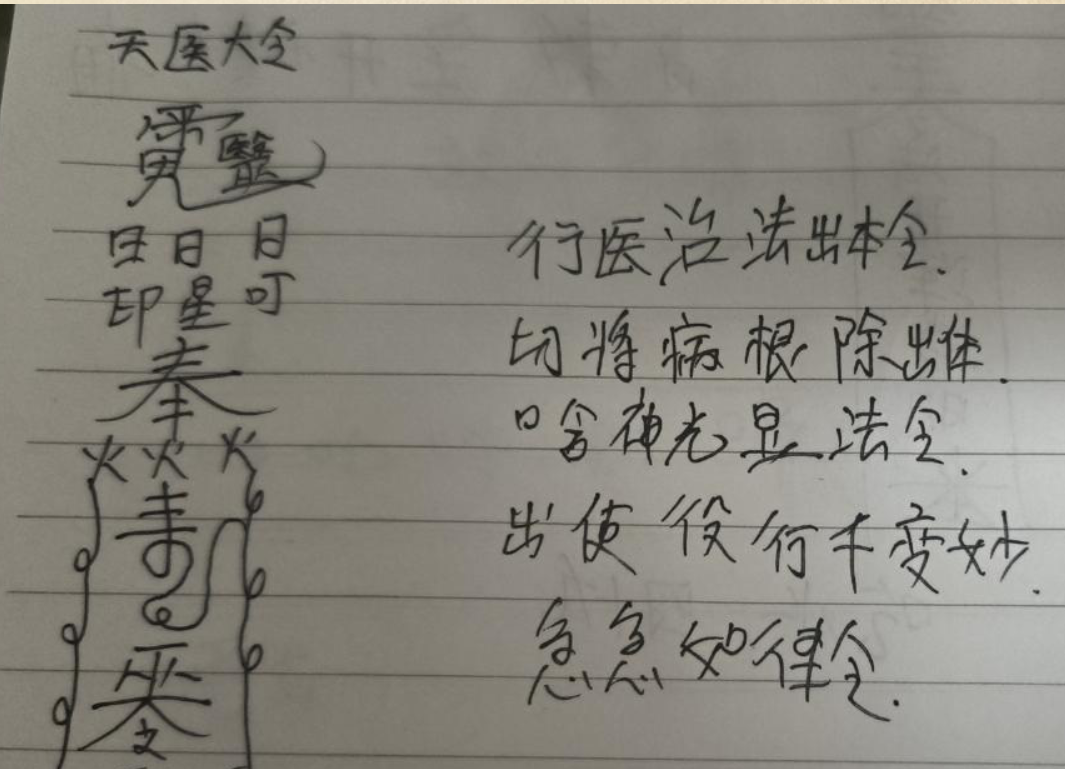 天医大令
日日日
印星叮
奉
火火火
行医治法出本令.
切将病根除出体.
口含神光显法令.
出使役行千变妙.
急急如律令.